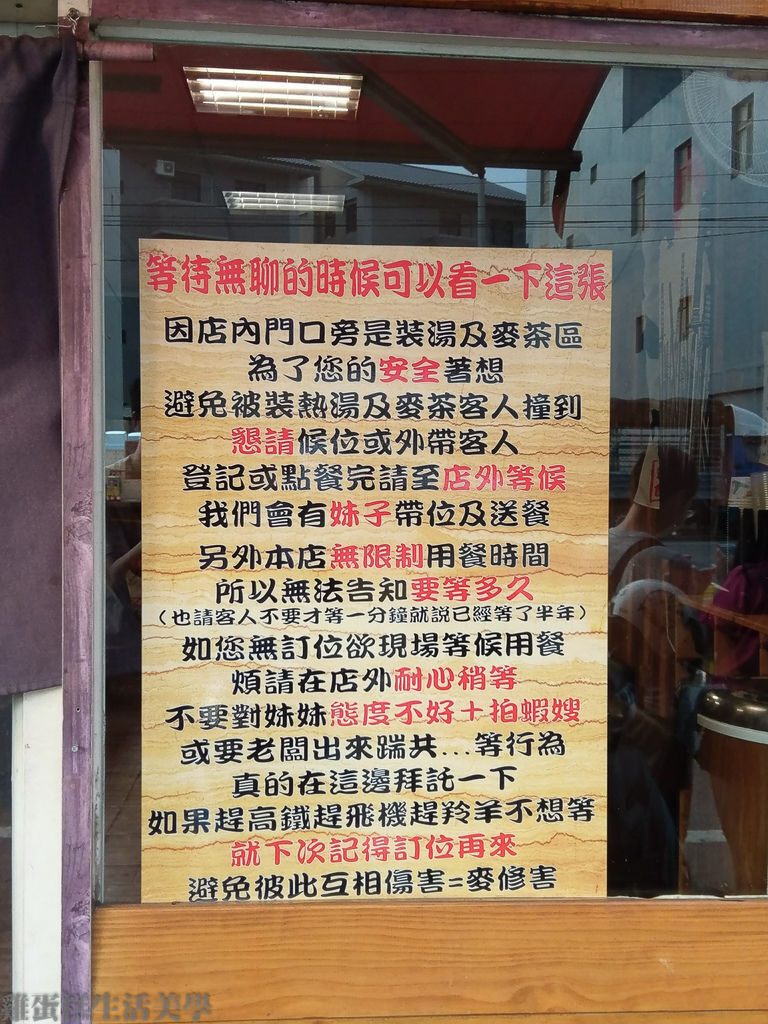 等待無聊的時候可以看一下這張
因店內門口旁是裝湯及麥茶區
為了您的安全著想
避免被裝熱湯及麥茶客人撞到
懇請候位或外帶客人
登記或點餐完請至店外等候
我們會有妹子帶位及送餐
另外本店無限制用餐時間
所以無法告知要等多久
（也請客人不要才等一分鐘就說已經等了半年）
如您無訂位欲現場等候用餐
煩請在店外耐心稍等
不要對妹妹態度不好＋拍蝦嫂
或要老闆出來踹共...等行為
真的在這邊拜託一下
如果趕高鐵趕飛機趕羚羊不想等
就下次記得訂位再來
避免彼此互相傷害=麥修害
雞蛋糕生活美學